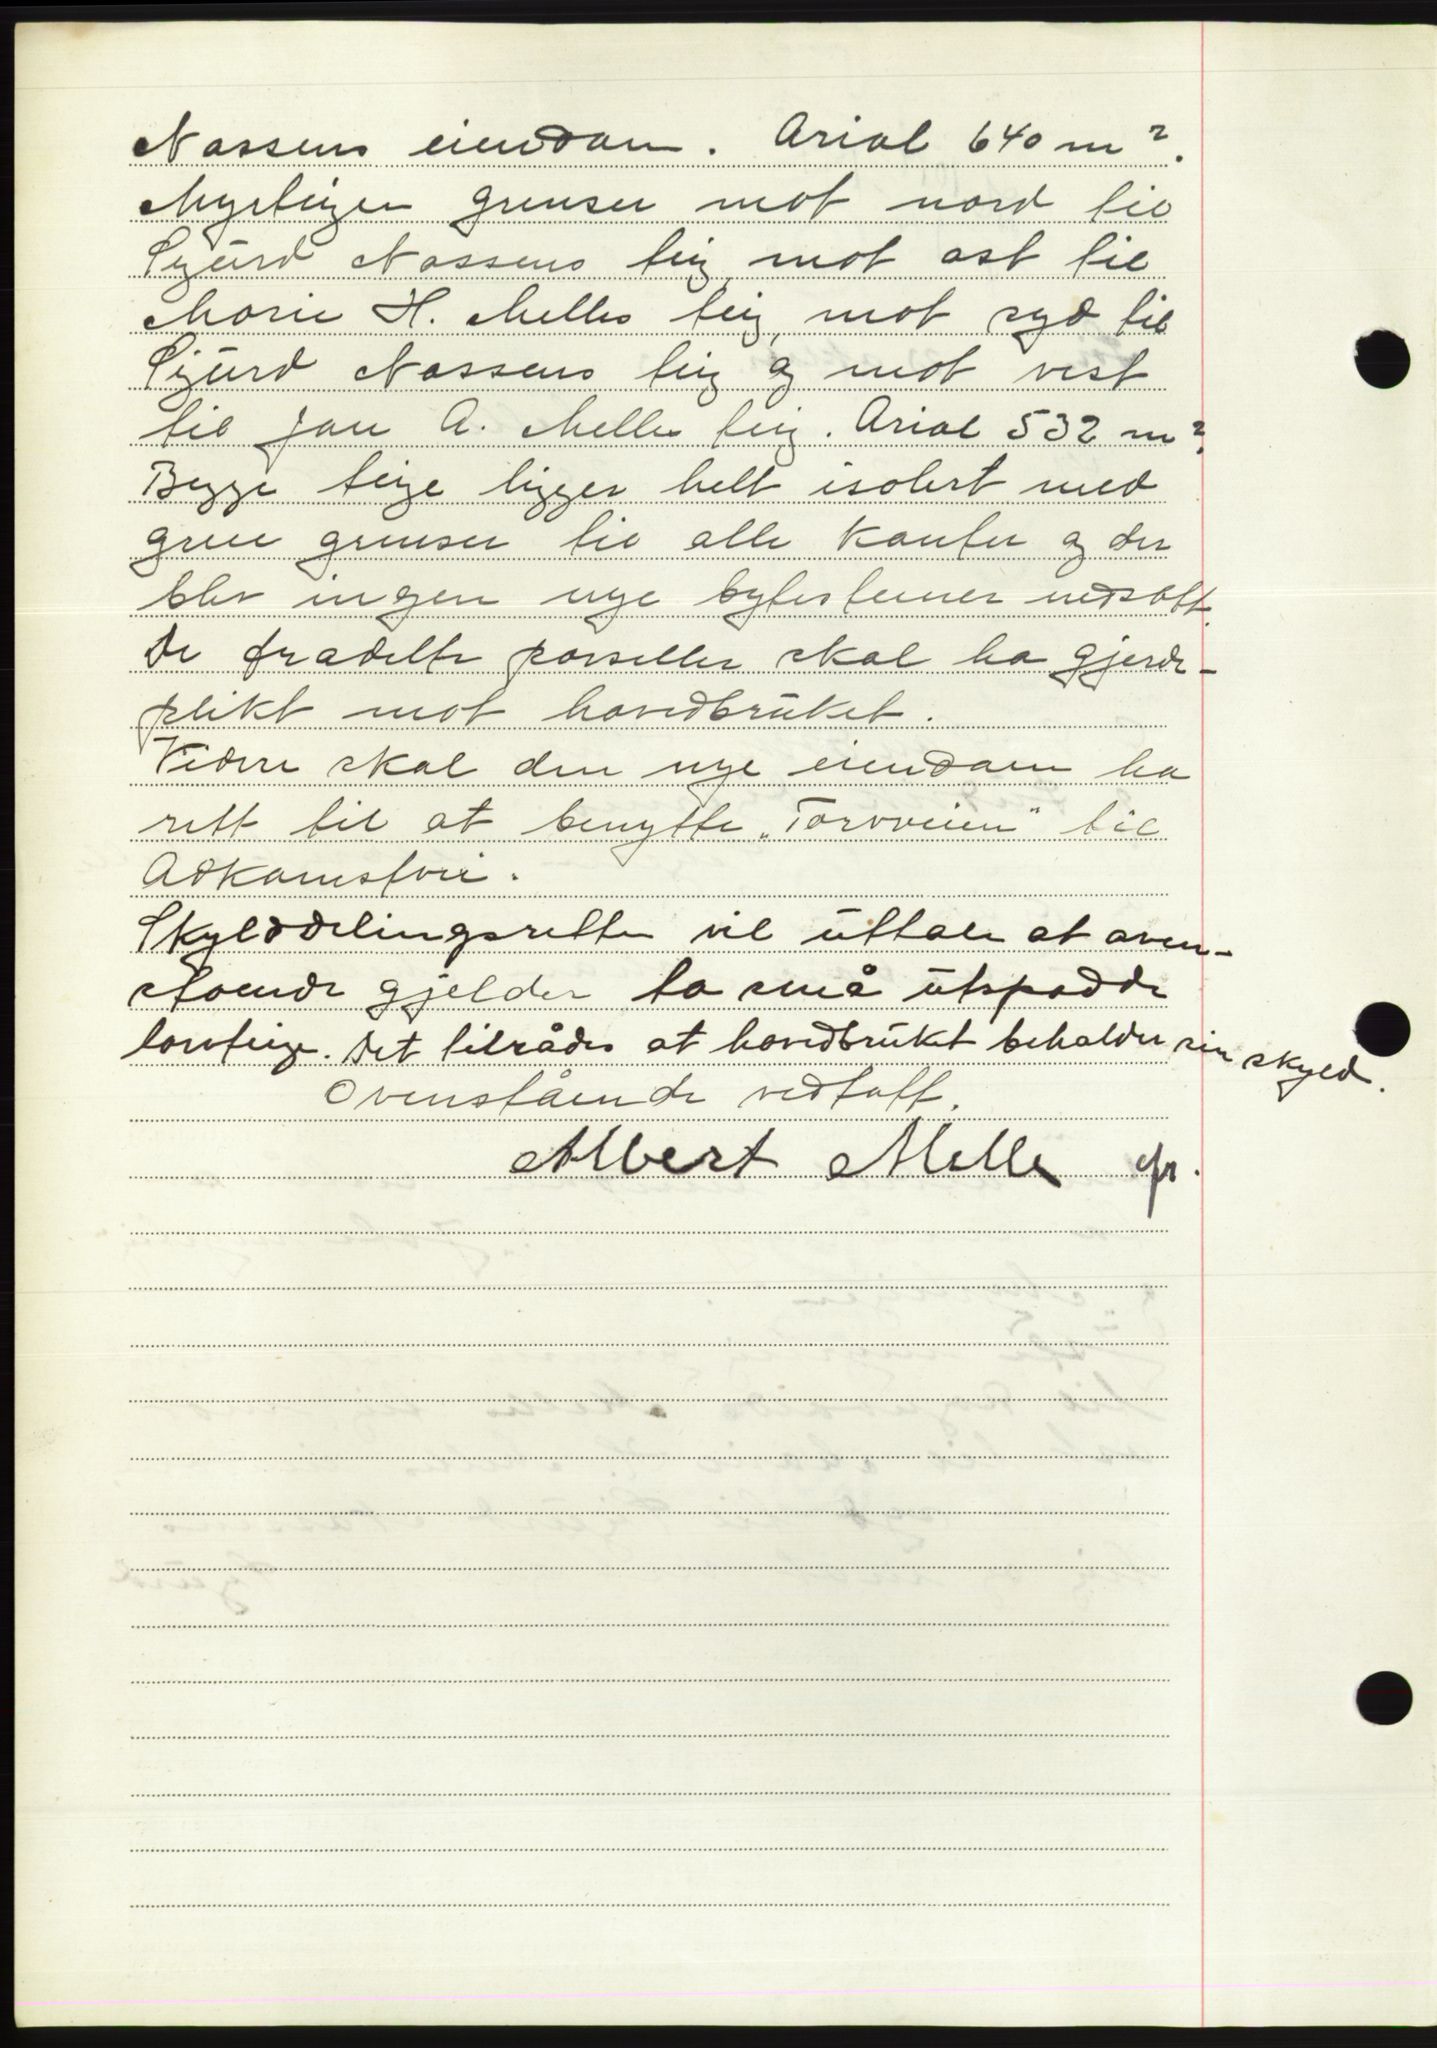 Nassens eiendom. Arial 640 m².
Myrteigen grenser mot nord til
Sjurd Nassens teig, mot ost til
Marie H. Melles teig, mot syd til
Sjurd Nassens teig og mot vest
til Jan A. Melles teig. Arial 532 m².
Begge teige ligger helt isolert med
greie grenser til alle kanter og der
blev ingen nye bytesteiner nedsatt.
De fradelte parseller skal ha gjerde-
plikt mot hovedbruket.
Videre skal den nye eiendom ha
rett til at benytte „Torvveien" til
Adkomstvei.
Skylddelingsretten vil uttale at oven-
stoende gjelder to små utspadde
lovteige. Det tilrådes at hovedbruket beholder sin skyld.
Ovenstående vedtatt.
Albert Melle